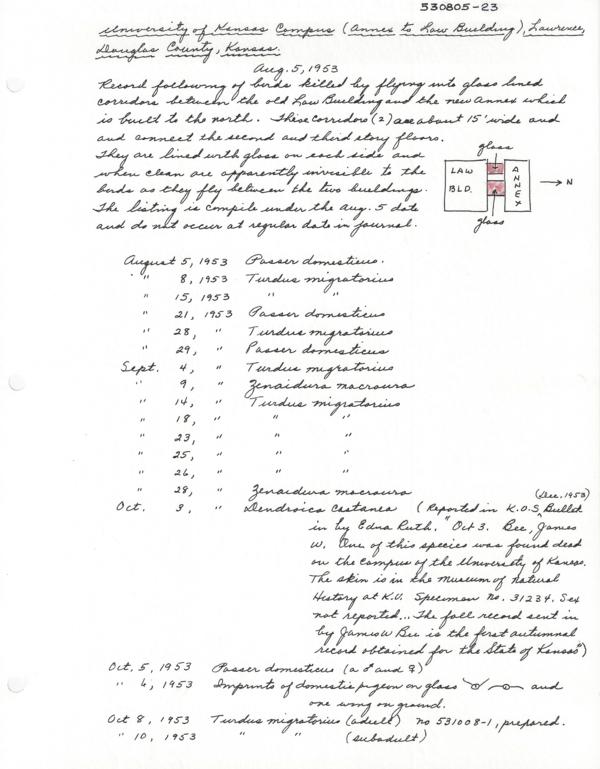 530805-23
University of Kansas Campus (Annex to Law Building), Lawrence,
Douglas County, Kansas.
Aug. 5, 1953
Record following of birds killed by flying into glass lined
corridors between the old Law Building and the new Annex which
is built to the north. These corridors (2) are about 15' wide and
and connect the second and third story floors.
They are lined with glass on each side and
when clean are apparently invisible to the
birds as they fly between the two buildings.
The listing is compile under the Aug. 5 date
and do not occur at regular date in journal.
glass
LAW
BLD.
ANNEX
→ N
glass
August 5, 1953 Passer domesticus.
" 8, 1953 Turdus migratorius
" 15, 1953 " "
" 21, 1953 Passer domesticus
" 28, " Turdus migratorius
" 29, " Passer domesticus
Sept. 4, " Turdus migratorius
" 9, " Zenaidura macroura
" 14, " Turdus migratorius
" 18, " " "
" 23, " " "
" 25, " " "
" 26, " " "
" 28, " Zenaidura macroura
(Dec. 1953)
Oct. 3, " Dendroica castanea (Reported in K.O.S. Bullet
in by Edna Ruth. "Oct 3. Bee, James
W. One of this species was found dead
on the campus of the University of Kansas.
The skin is in the Museum of Natural
History at K.U. Specimen No. 31234. Sex
not reported... The fall record sent in
by James W Bee is the first autumnal
record obtained for the State of Kansas")
Oct. 5, 1953 Passer domesticus (a ♂ and ♀)
" 6, 1953 Imprints of domestic pigeon on glass and
one wing on ground.
Oct 8, 1953 Turdus migratorius (adult) no 531008-1, prepared.
" 10, 1953 " " (subadult)